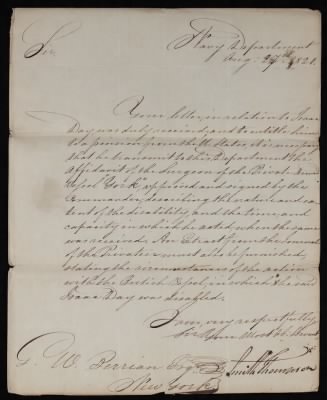 Navy Department
Aug: 27th 1821.
Sir,
Your letter, in relation to Isaac
Day was duly received; and to entitle him
to a pension from the U States, it is necessary
that he transmit to this Department the
affidavit of the Surgeon of the Private Armed
Vessel York approved and signed by the
Commander, describing the nature and ex-
tent of the disability, and the time and
capacity in which he acted when the same
was received. An Extract from the Journal
of the Privateer must also be furnished,
stating the circumstances of the action
with the British Vessel, in which the said
Isaac Day was disabled.
I am, very respectfully
Sir, Your Most Ob. Servt
Smith Thompson
G. W. Perrian Esqr.
New York